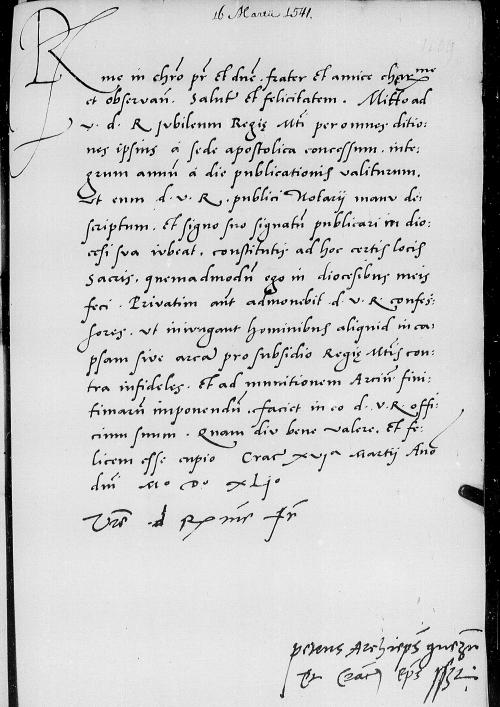 16 Martii 1541.
Rme in chro pr et dne. frater et amice charme
et observan. Salute et felicitatem. Mitto ad
v. d. R Jubileum Regię Mti per omnes ditio:
nes ipsius à sede apostolica concessum, inte:
grum annu à die publicationis valiturum.
Ut eum d. v. R. publici Notarij manu de:
scriptum, et signo suo signatu publicari in dio:
cesi sua iubeat, constitutis ad hoc certis locis
Sacris, quemadmodu ego in diocesibus meis
feci. Privatim aut admonebit d. v. R. confes:
sores, ut iniungant hominibus aliquid in ca:
psam sive arca pro subsidio Regię Mtis con:
tra infideles, et ad munitionem Arciu fini:
timaru imponendu, faciet in eo d. v. R. offi:
cium suum. Quam diu bene valere, et fe:
licem esse cupio Crac XVIa Martij Ano
dni Mo Do XLio
Vre d Rme Fr
Petrus Archieps gnezn
et Crac eps